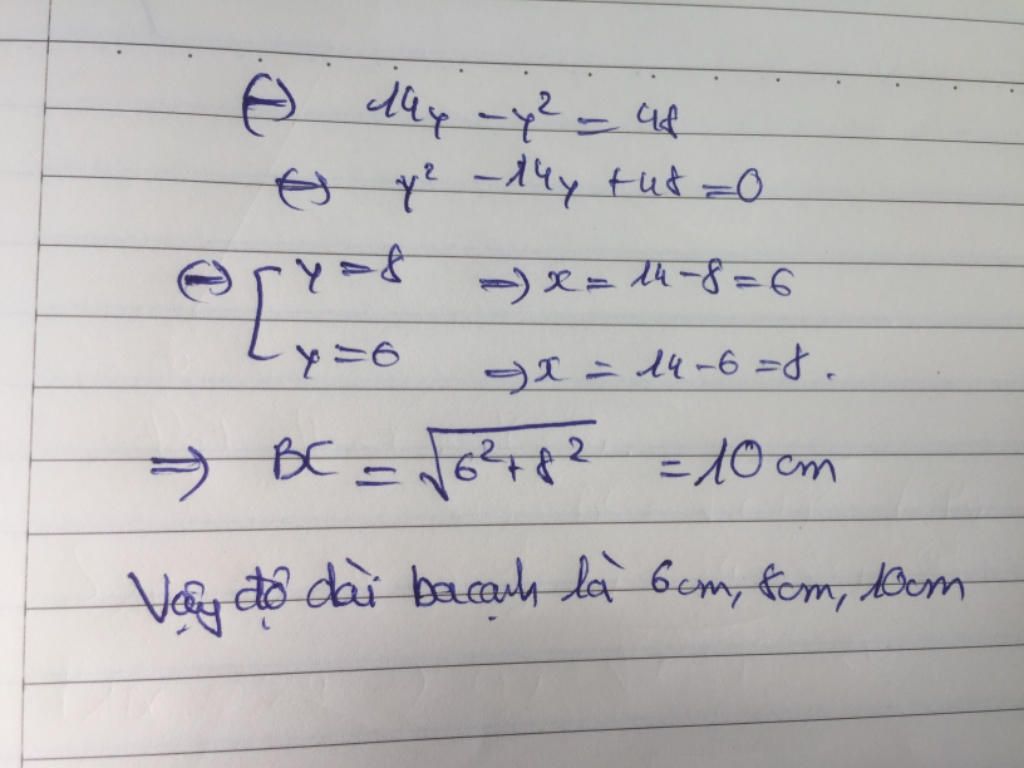 ⇔ 14y - y² = 48
⇔ y² - 14y + 48 = 0
⇔ [ y = 8 ⇒ x = 14 - 8 = 6
y = 6 ⇒ x = 14 - 6 = 8.
⇒ BC = √(6² + 8²) = 10 cm
Vậy độ dài ba cạnh là 6cm, 8cm, 10cm